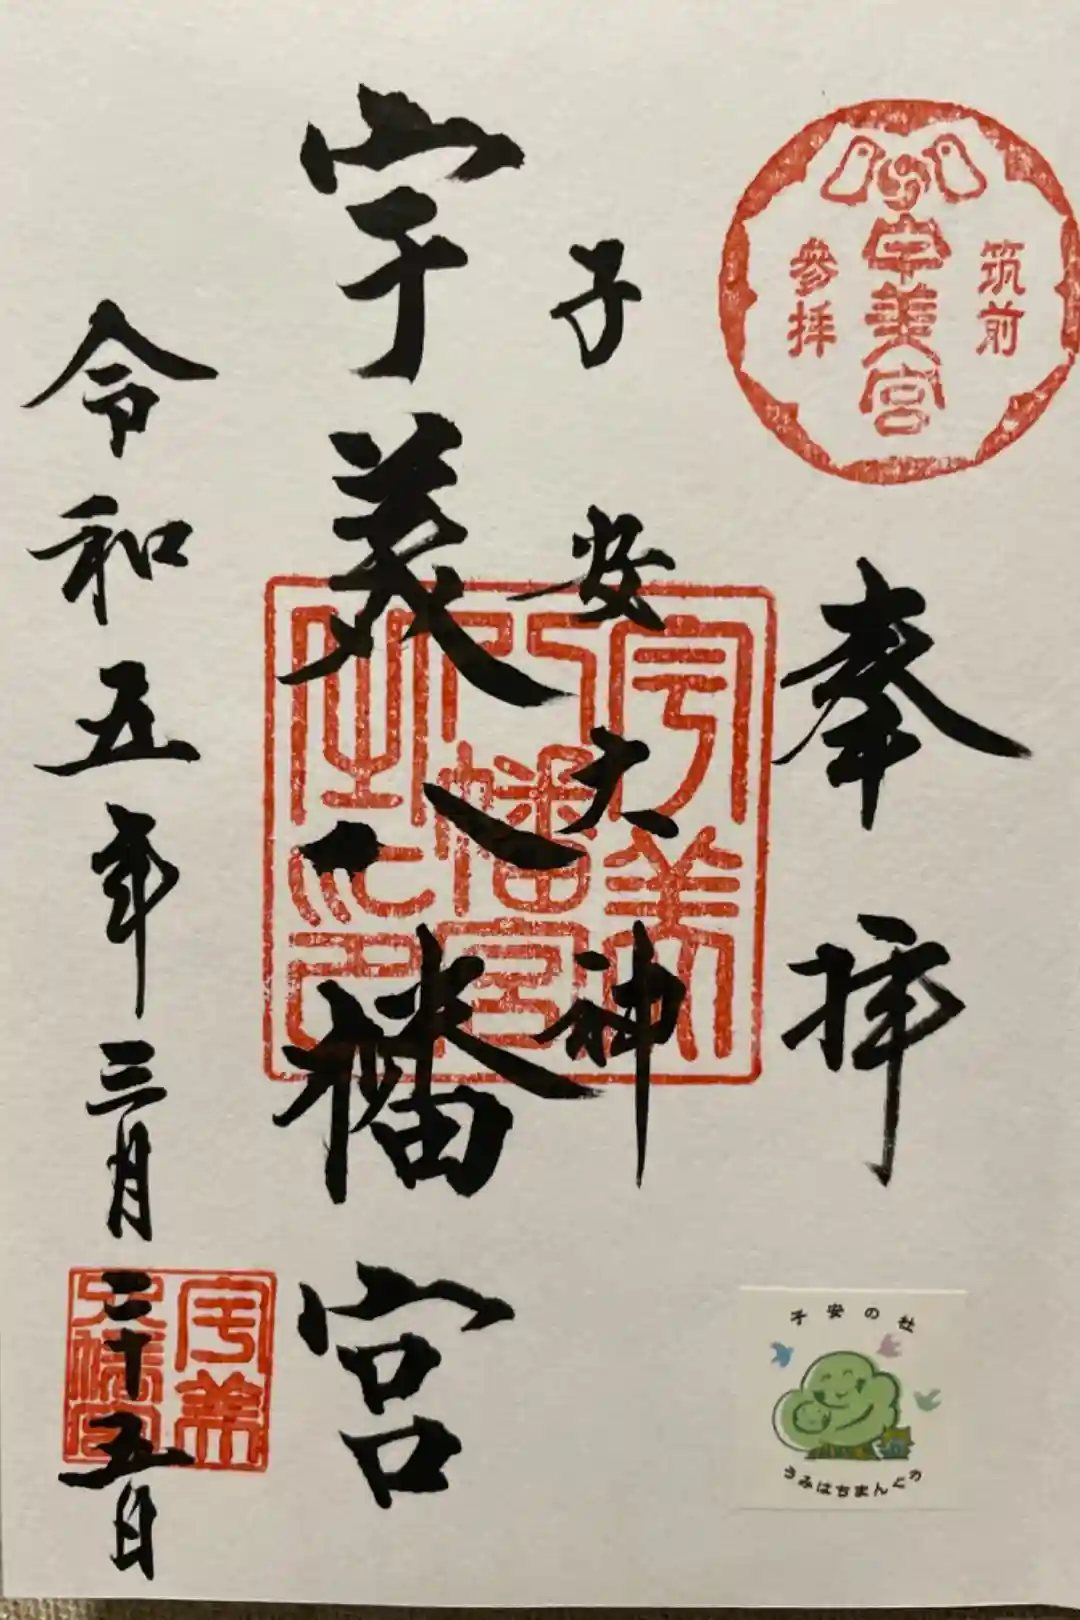 筑前
宇美宮
参拝
奉拝
子安大神
宇美八幡宮
宇美
八幡宮
之印
令和五年三月二十五日
宇美
八幡宮
子安の杜
うみはちまんぐう